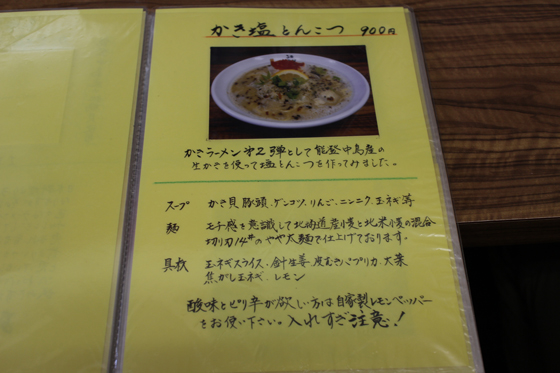 かき塩とんこつ 900円
かきラーメン第2弾として能登中島産の
生かきを使って塩とんこつを作ってみました。
スープ かき貝、豚頭、ゲンコツ、りんご、ニンニク、玉ネギ、等
麺 モチ感を意識して北海道産小麦と北米小麦の混合
切り刃14#のやや太麺で仕上げております。
具材 玉ネギスライス、針生姜、皮むきパプリカ、大葉
焦がし玉ネギ、レモン
酸味とピリ辛が欲しい方は自家製レモンペッパー
をお使い下さい。入れすぎ注意!